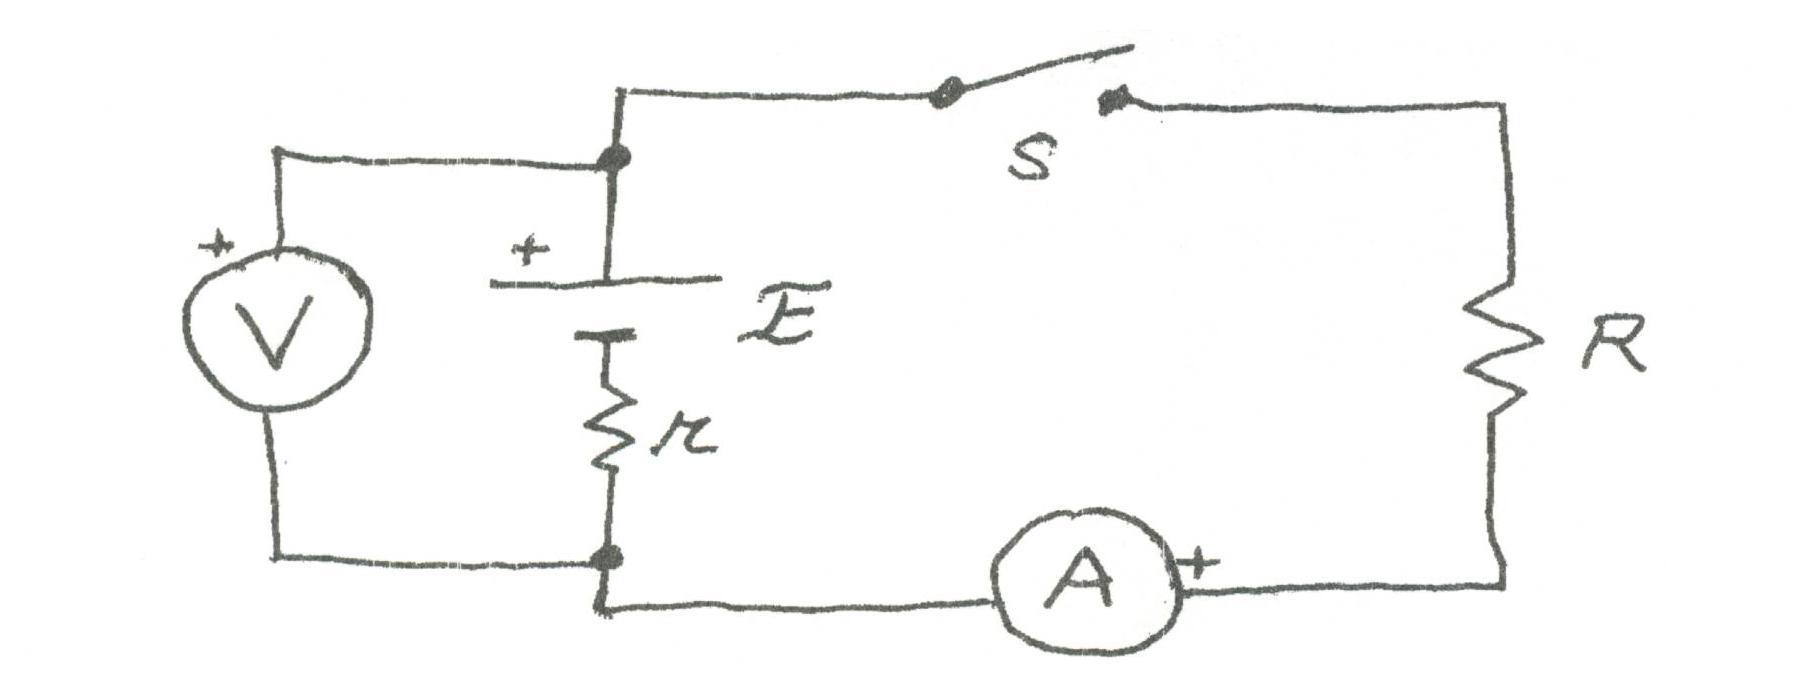 S
+
+
V
E
R
r
A
+